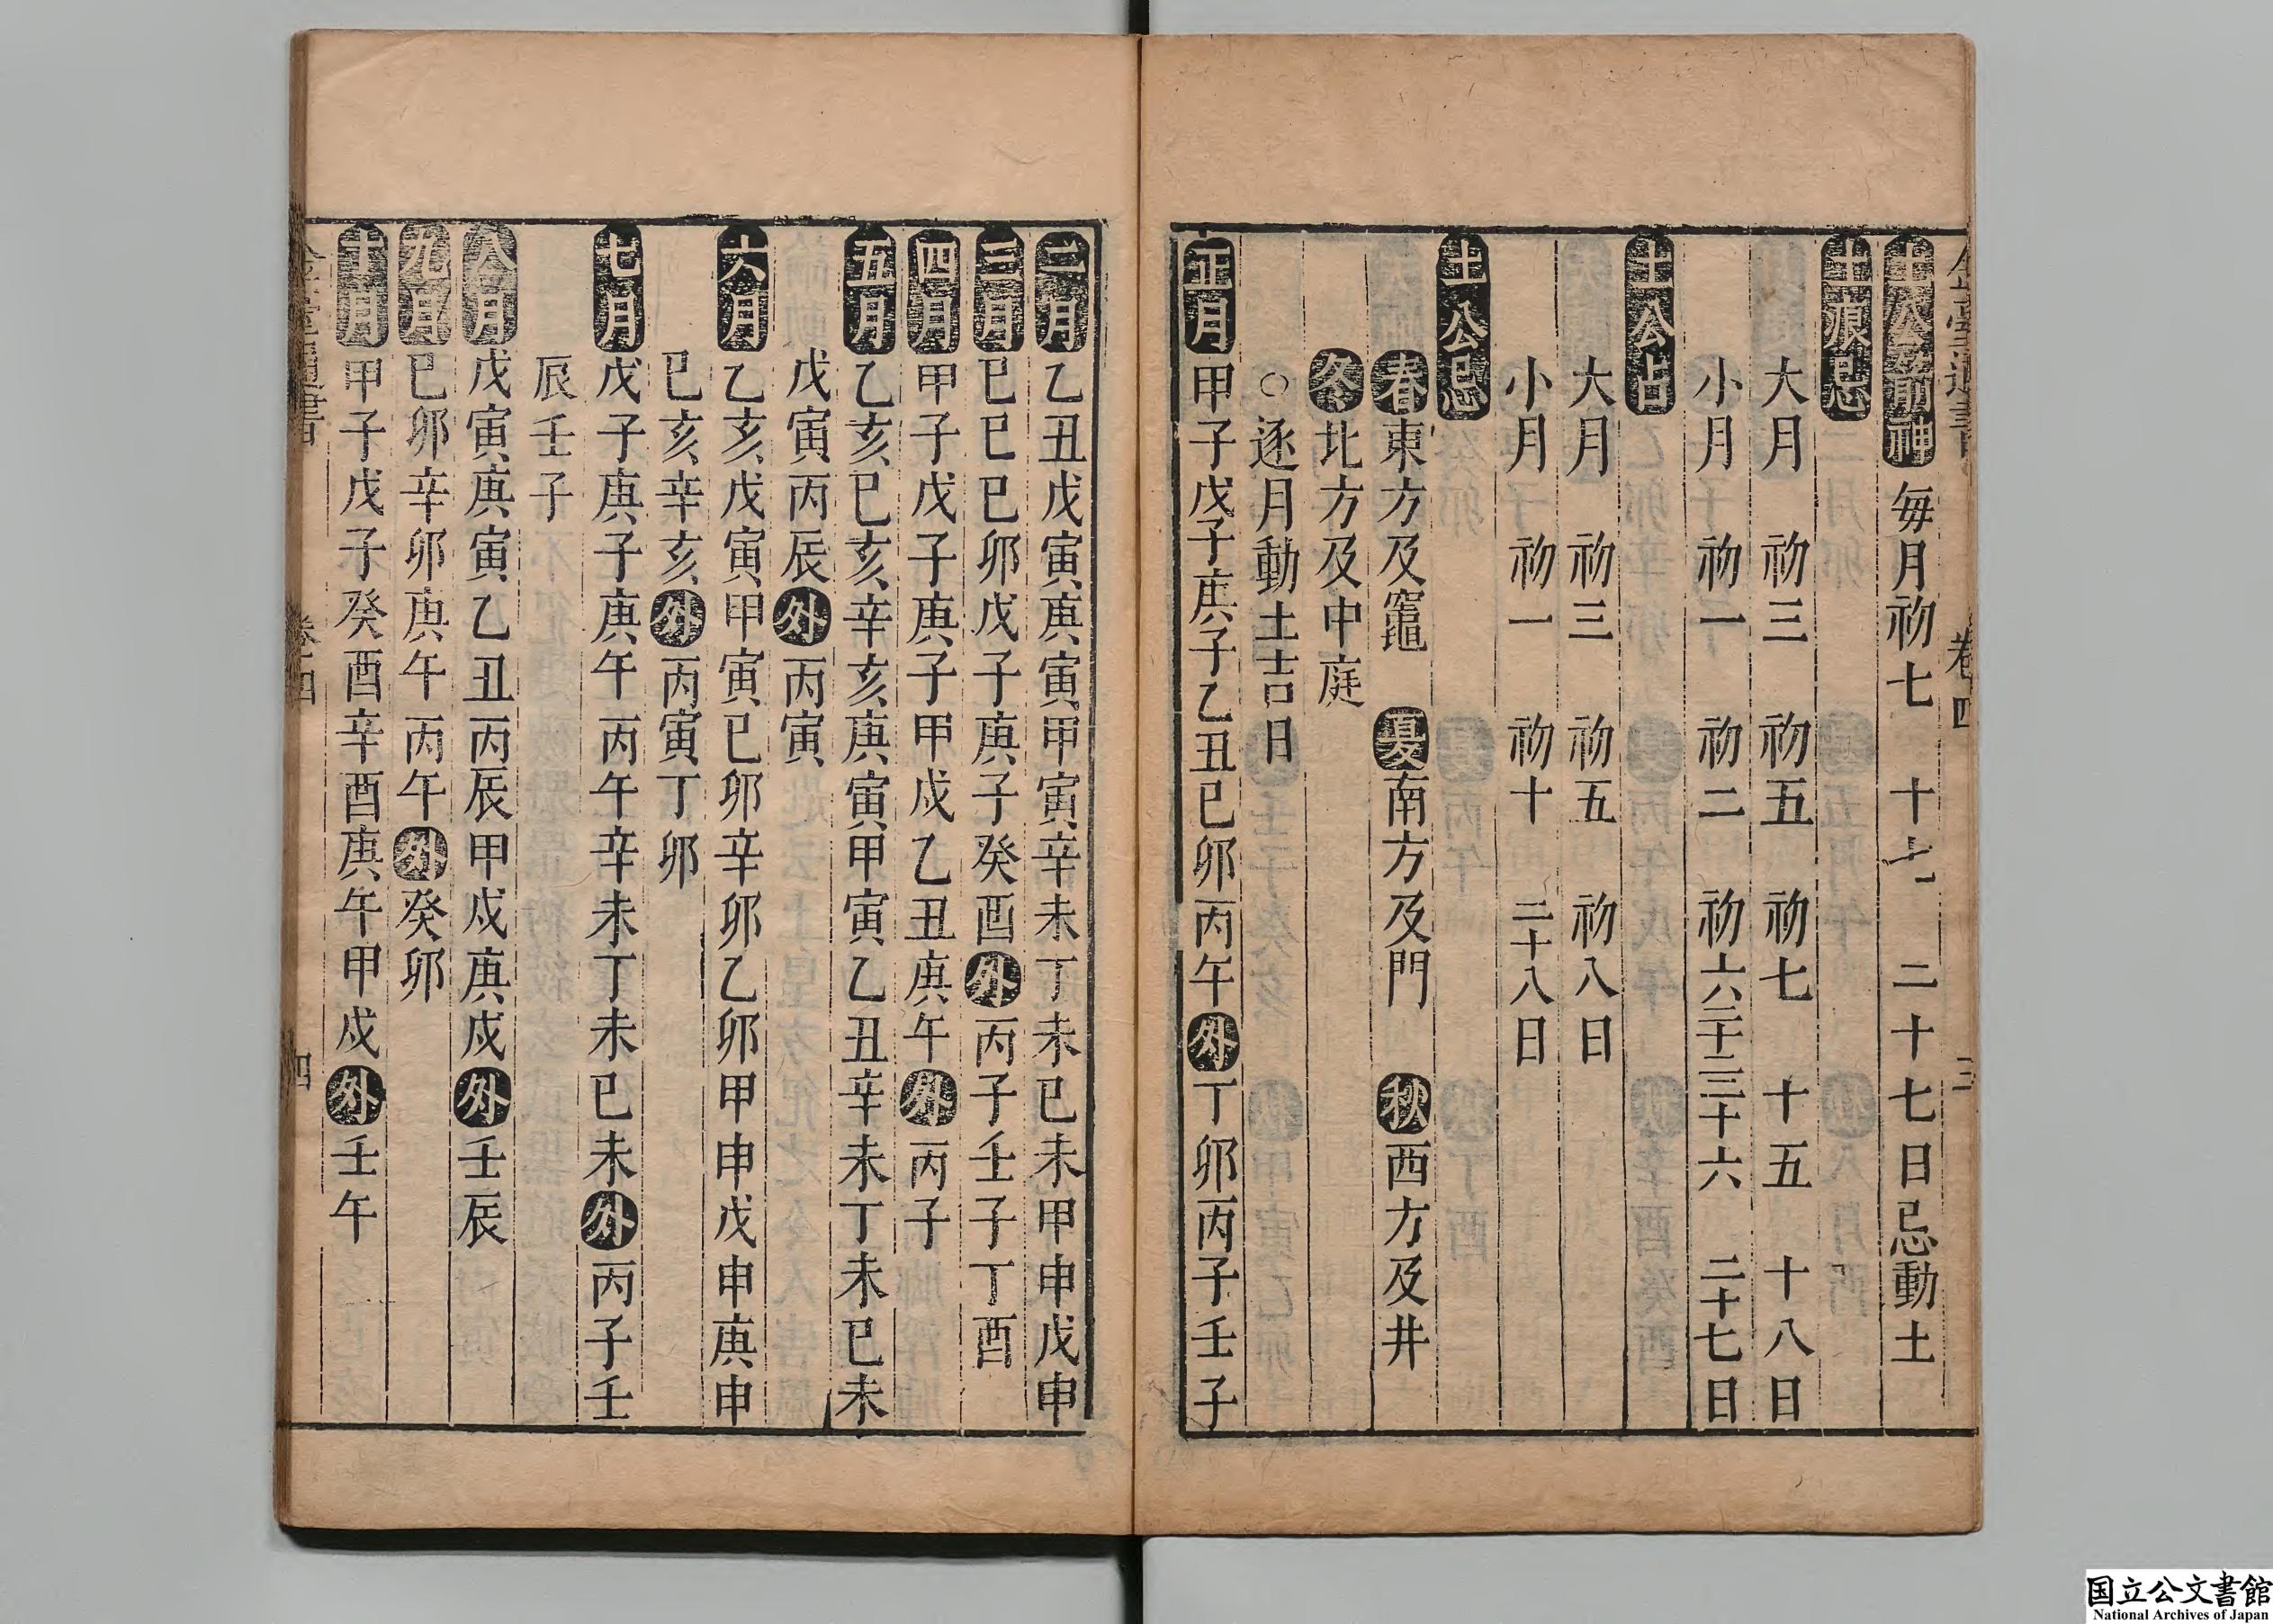 卷四
三
土公箭神每月初七 十七 二十七日忌動土
土痕忌
大月 初三 初五 初七 十五 十八日
小月 初一 初二 初六 二十二 二十六 二十七日
土公占
大月 初三 初五 初八日
小月 初一 初十 二十八日
土公忌
春東方及竈 夏南方及門 秋西方及井
冬北方及中庭
○逐月動土吉日
正月甲子戊子庚子乙丑己卯丙午外丁卯丙子壬子
二月乙丑戊寅庚寅甲寅辛未丁未己未甲申戊申
三月己巳己卯戊子庚子癸酉外丙子壬子丁酉
四月甲子戊子庚子甲戌乙丑庚午外丙子
五月乙亥己亥辛亥庚寅甲寅乙丑辛未丁未己未
戊寅丙辰外丙寅
六月乙亥戊寅甲寅己卯辛卯乙卯甲申戊申庚申
己亥辛亥外丙寅丁卯
七月戊子庚子庚午丙午辛未丁未己未外丙子壬
辰壬子
八月戊寅庚寅乙丑丙辰甲戌庚戌外壬辰
九月己卯辛卯庚午丙午外癸卯
十月甲子戊子癸酉辛酉庚午甲戌外壬午
卷四
四
国立公文書館
National Archives of Japan